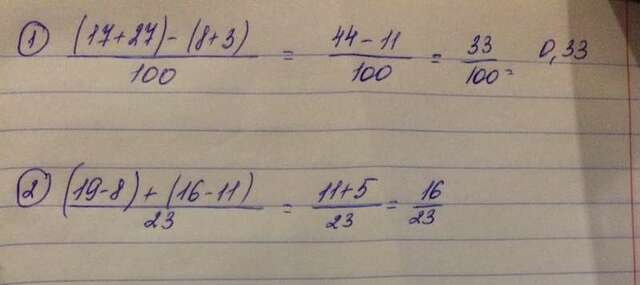 ① (17+27)-(8+3)/100 = 44-11/100 = 33/100 = 0,33
② (19-8)+(16-11)/23 = 11+5/23 = 16/23